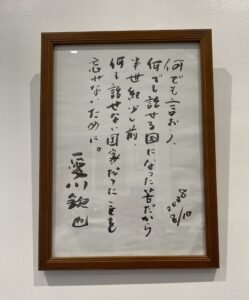 何でも言おう、
何でも話せる国になった筈だから
半世紀少し前、
何も話せない国家だったことを
忘れないために。
愛川欽也
8/10